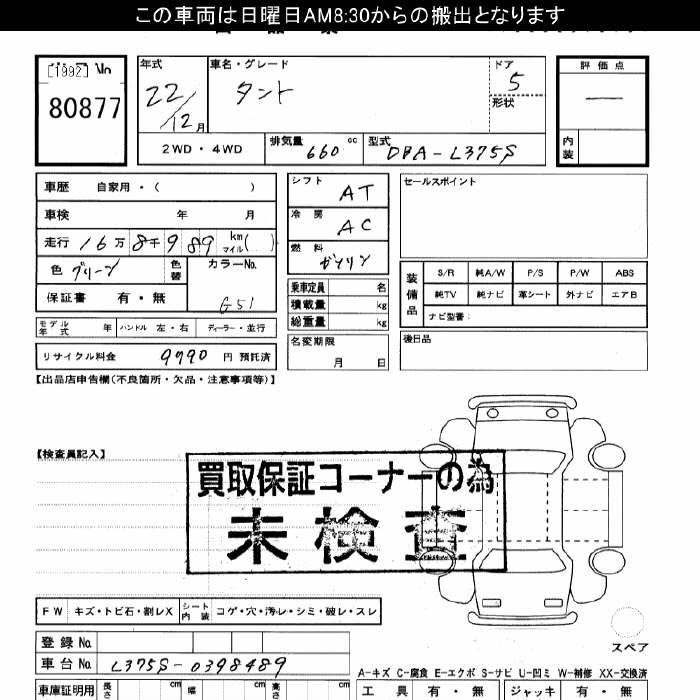 この車両は日曜日AM8:30からの搬出となります
[1992] No
80877
年式
22/12月
車名・グレード
タント
ドア
5
形状
評価点
—
内装
2WD・4WD
排気量 660 cc
型式 DBA-L375S
車歴 自家用・( )
車検 年 月
走行 16万8千989 km マイル( )
色 グリーン
色替
カラーNo.
G51
保証書 有・無
シフト AT
冷房 AC
燃料 ガソリン
乗車定員 名
積載量 kg
総重量 kg
セールスポイント
装備品
S/R 純A/W P/S P/W ABS
純TV 純ナビ 革シート 外ナビ エアB
ナビ型番:
モデル年式 年 ハンドル 左・右 ディーラー・並行
名変期限
月 日
後日品
リサイクル料金 9790 円 預託済
【出品店申告欄(不良箇所・欠品・注意事項等)】
【検査員記入】
買取保証コーナーの為
未検査
FW キズ・トビ石・割レX シート内装 コゲ・穴・汚レ・シミ・破レ・スレ
スペア
登録No.
車台No. L375S-0398489
A-キズ C-腐食 E-エクボ S-サビ U-凹ミ W-補修 XX-交換済
車庫証明用 長さ cm 幅 cm 高さ cm
工具 有・無 ジャッキ 有・無